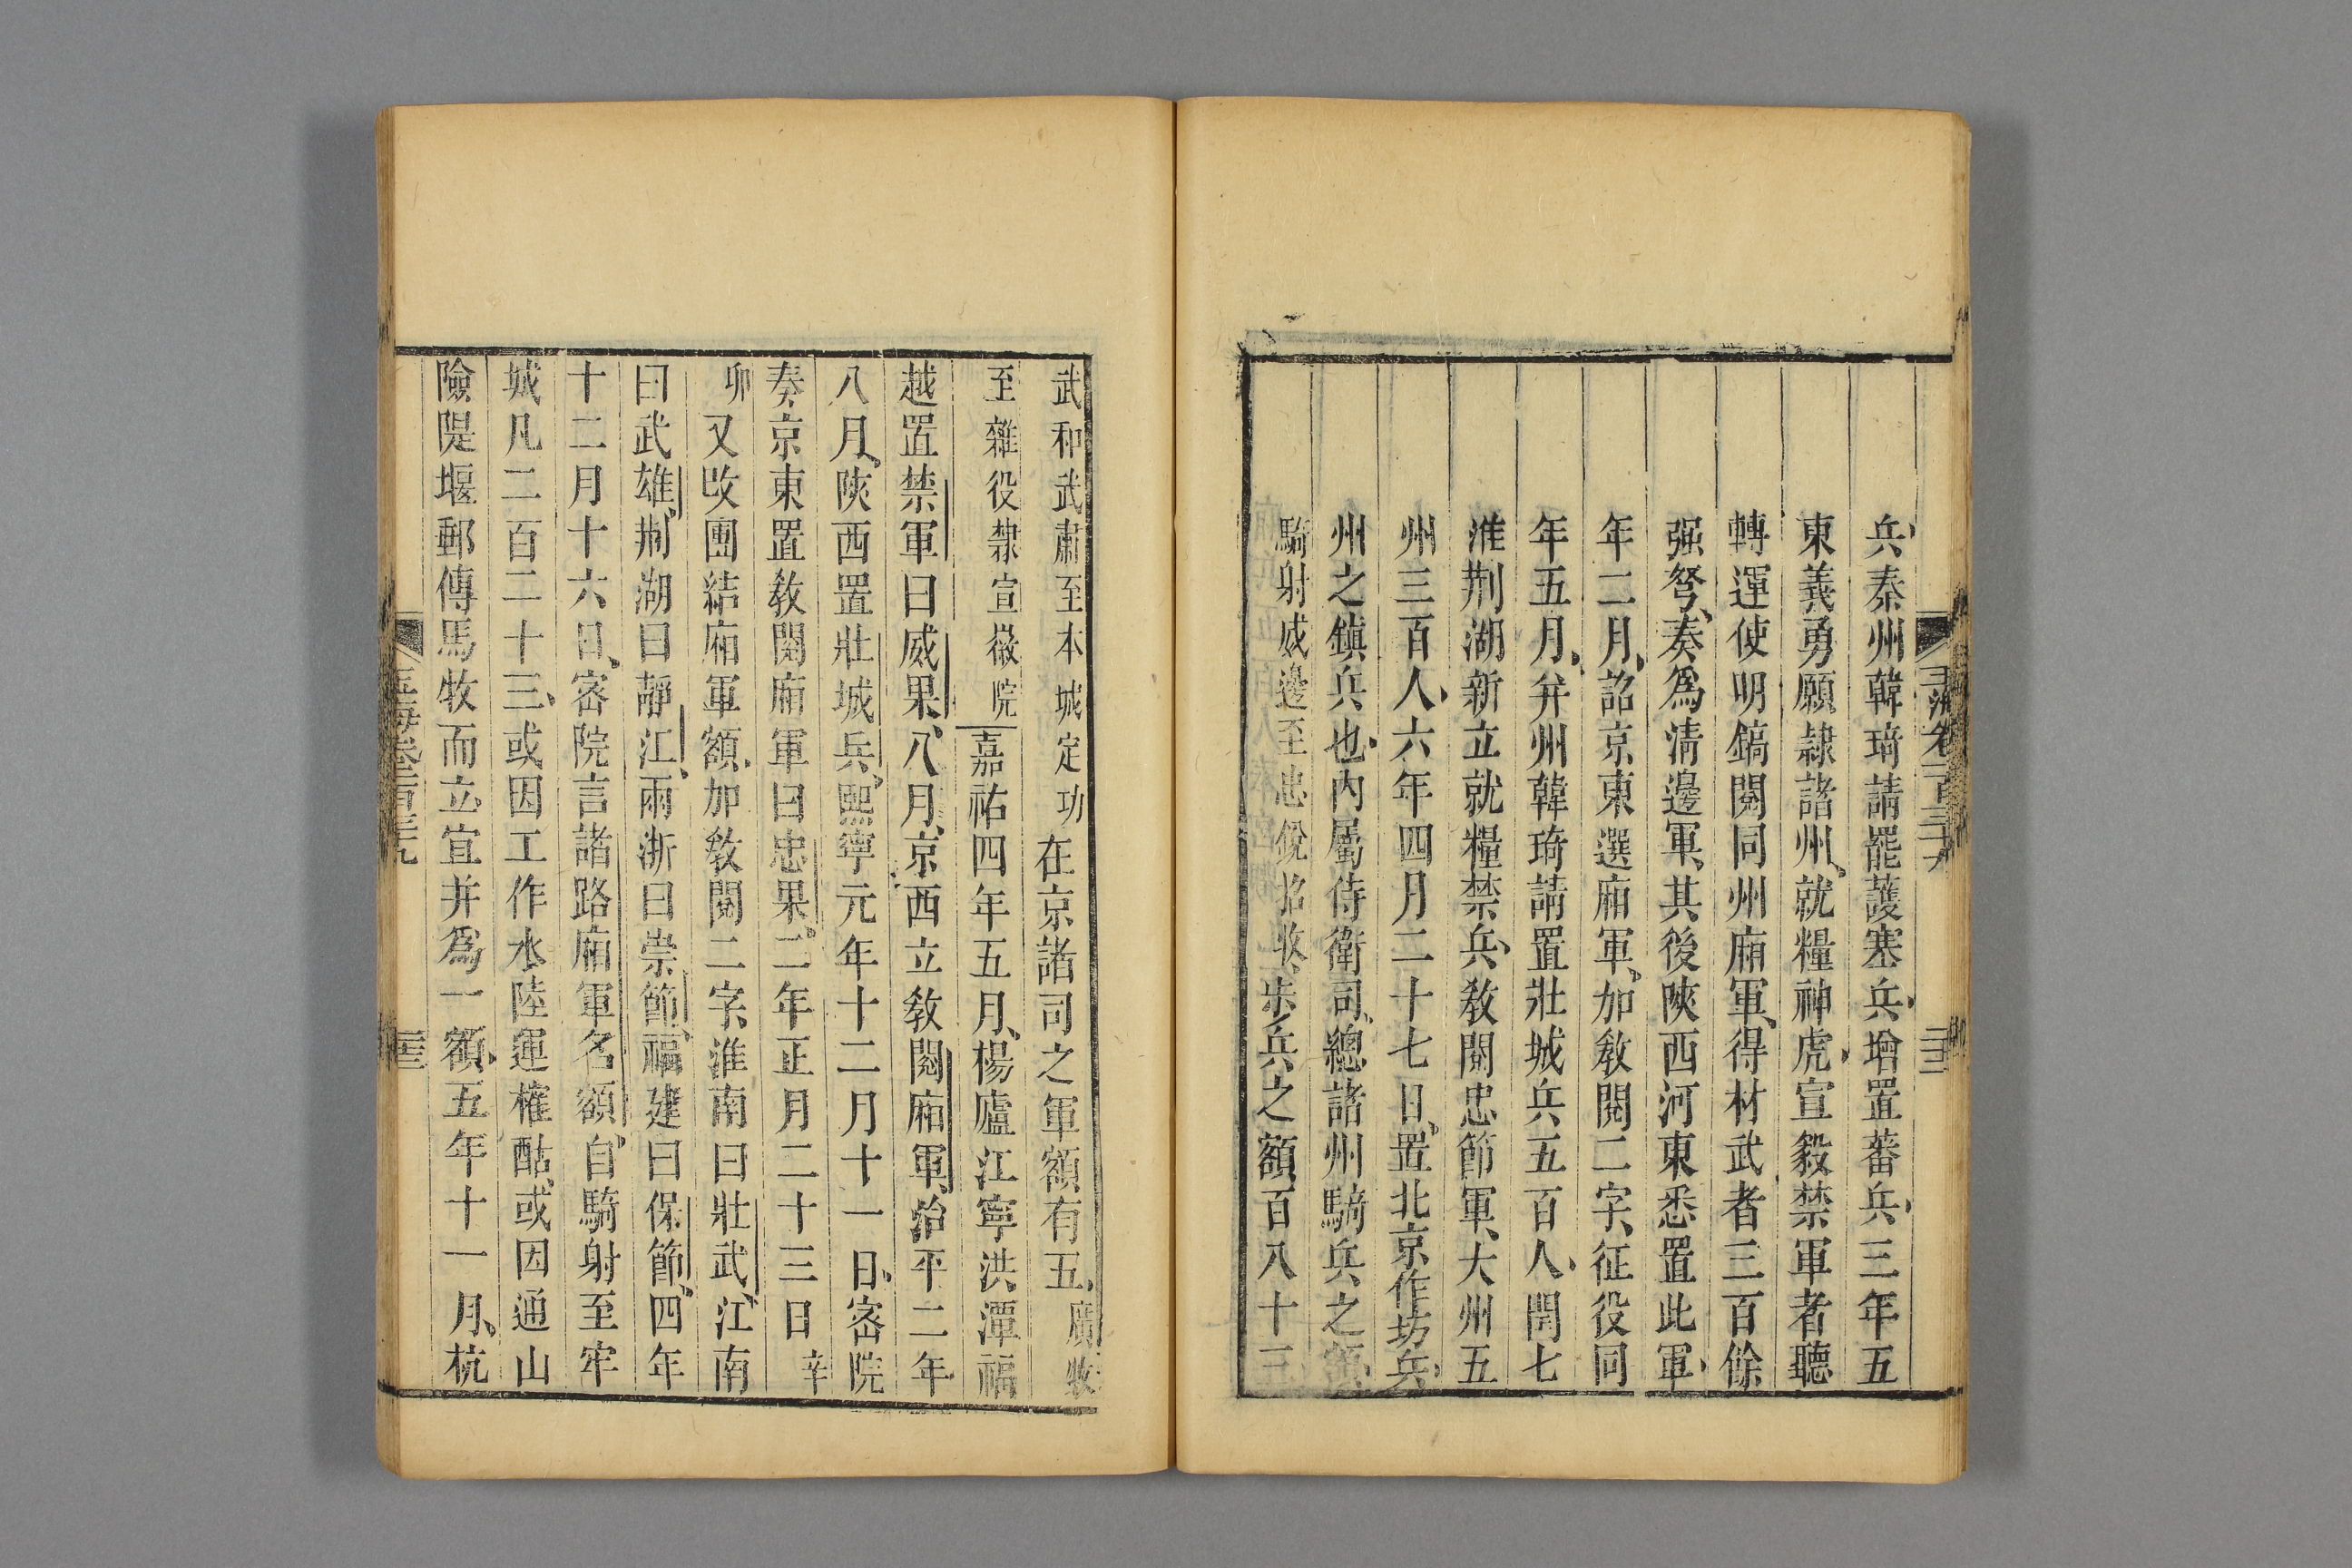 兵秦州韓琦請罷護塞兵增置蕃兵三年五
東義勇願隷諸州就糧神虎宣毅禁軍者聽
轉運使明鎬閱同州廂軍得材武者三百餘
强弩奏爲清邊軍其後陝西河東悉置此軍
年二月詔京東選廂軍加敎閱二字征役同
年五月并州韓琦請置壯城兵五百人閏七
淮荆湖新立就糧禁兵敎閱忠節軍大州五
州三百人六年四月二十七日置北京作坊兵
州之鎮兵也內屬侍衛司總諸州騎兵之額
騎射威邊至忠銳招收步兵之額百八十三
玉海卷一百三十九
武和武肅至本城定功在京諸司之軍額有五廣牧
至雜役隸宣徽院嘉祐四年五月楊廬江寧洪潭福
越置禁軍曰威果八月京西立敎閱廂軍治平二年
八月陝西置壯城兵熙寧元年十二月十一日密院
奏京東置敎閱廂軍曰忠果二年正月二十三日辛
卯又改團結廂軍額加敎閱二字淮南曰壯武江南
曰武雄荆湖曰靜江兩浙曰崇節福建曰保節四年
十二月十六日密院言諸路廂軍名額自騎射至牢
城凡二百二十三或因工作水陸運榷酤或因通山
險隄堰郵傳馬牧而立宜并爲一額五年十一月杭